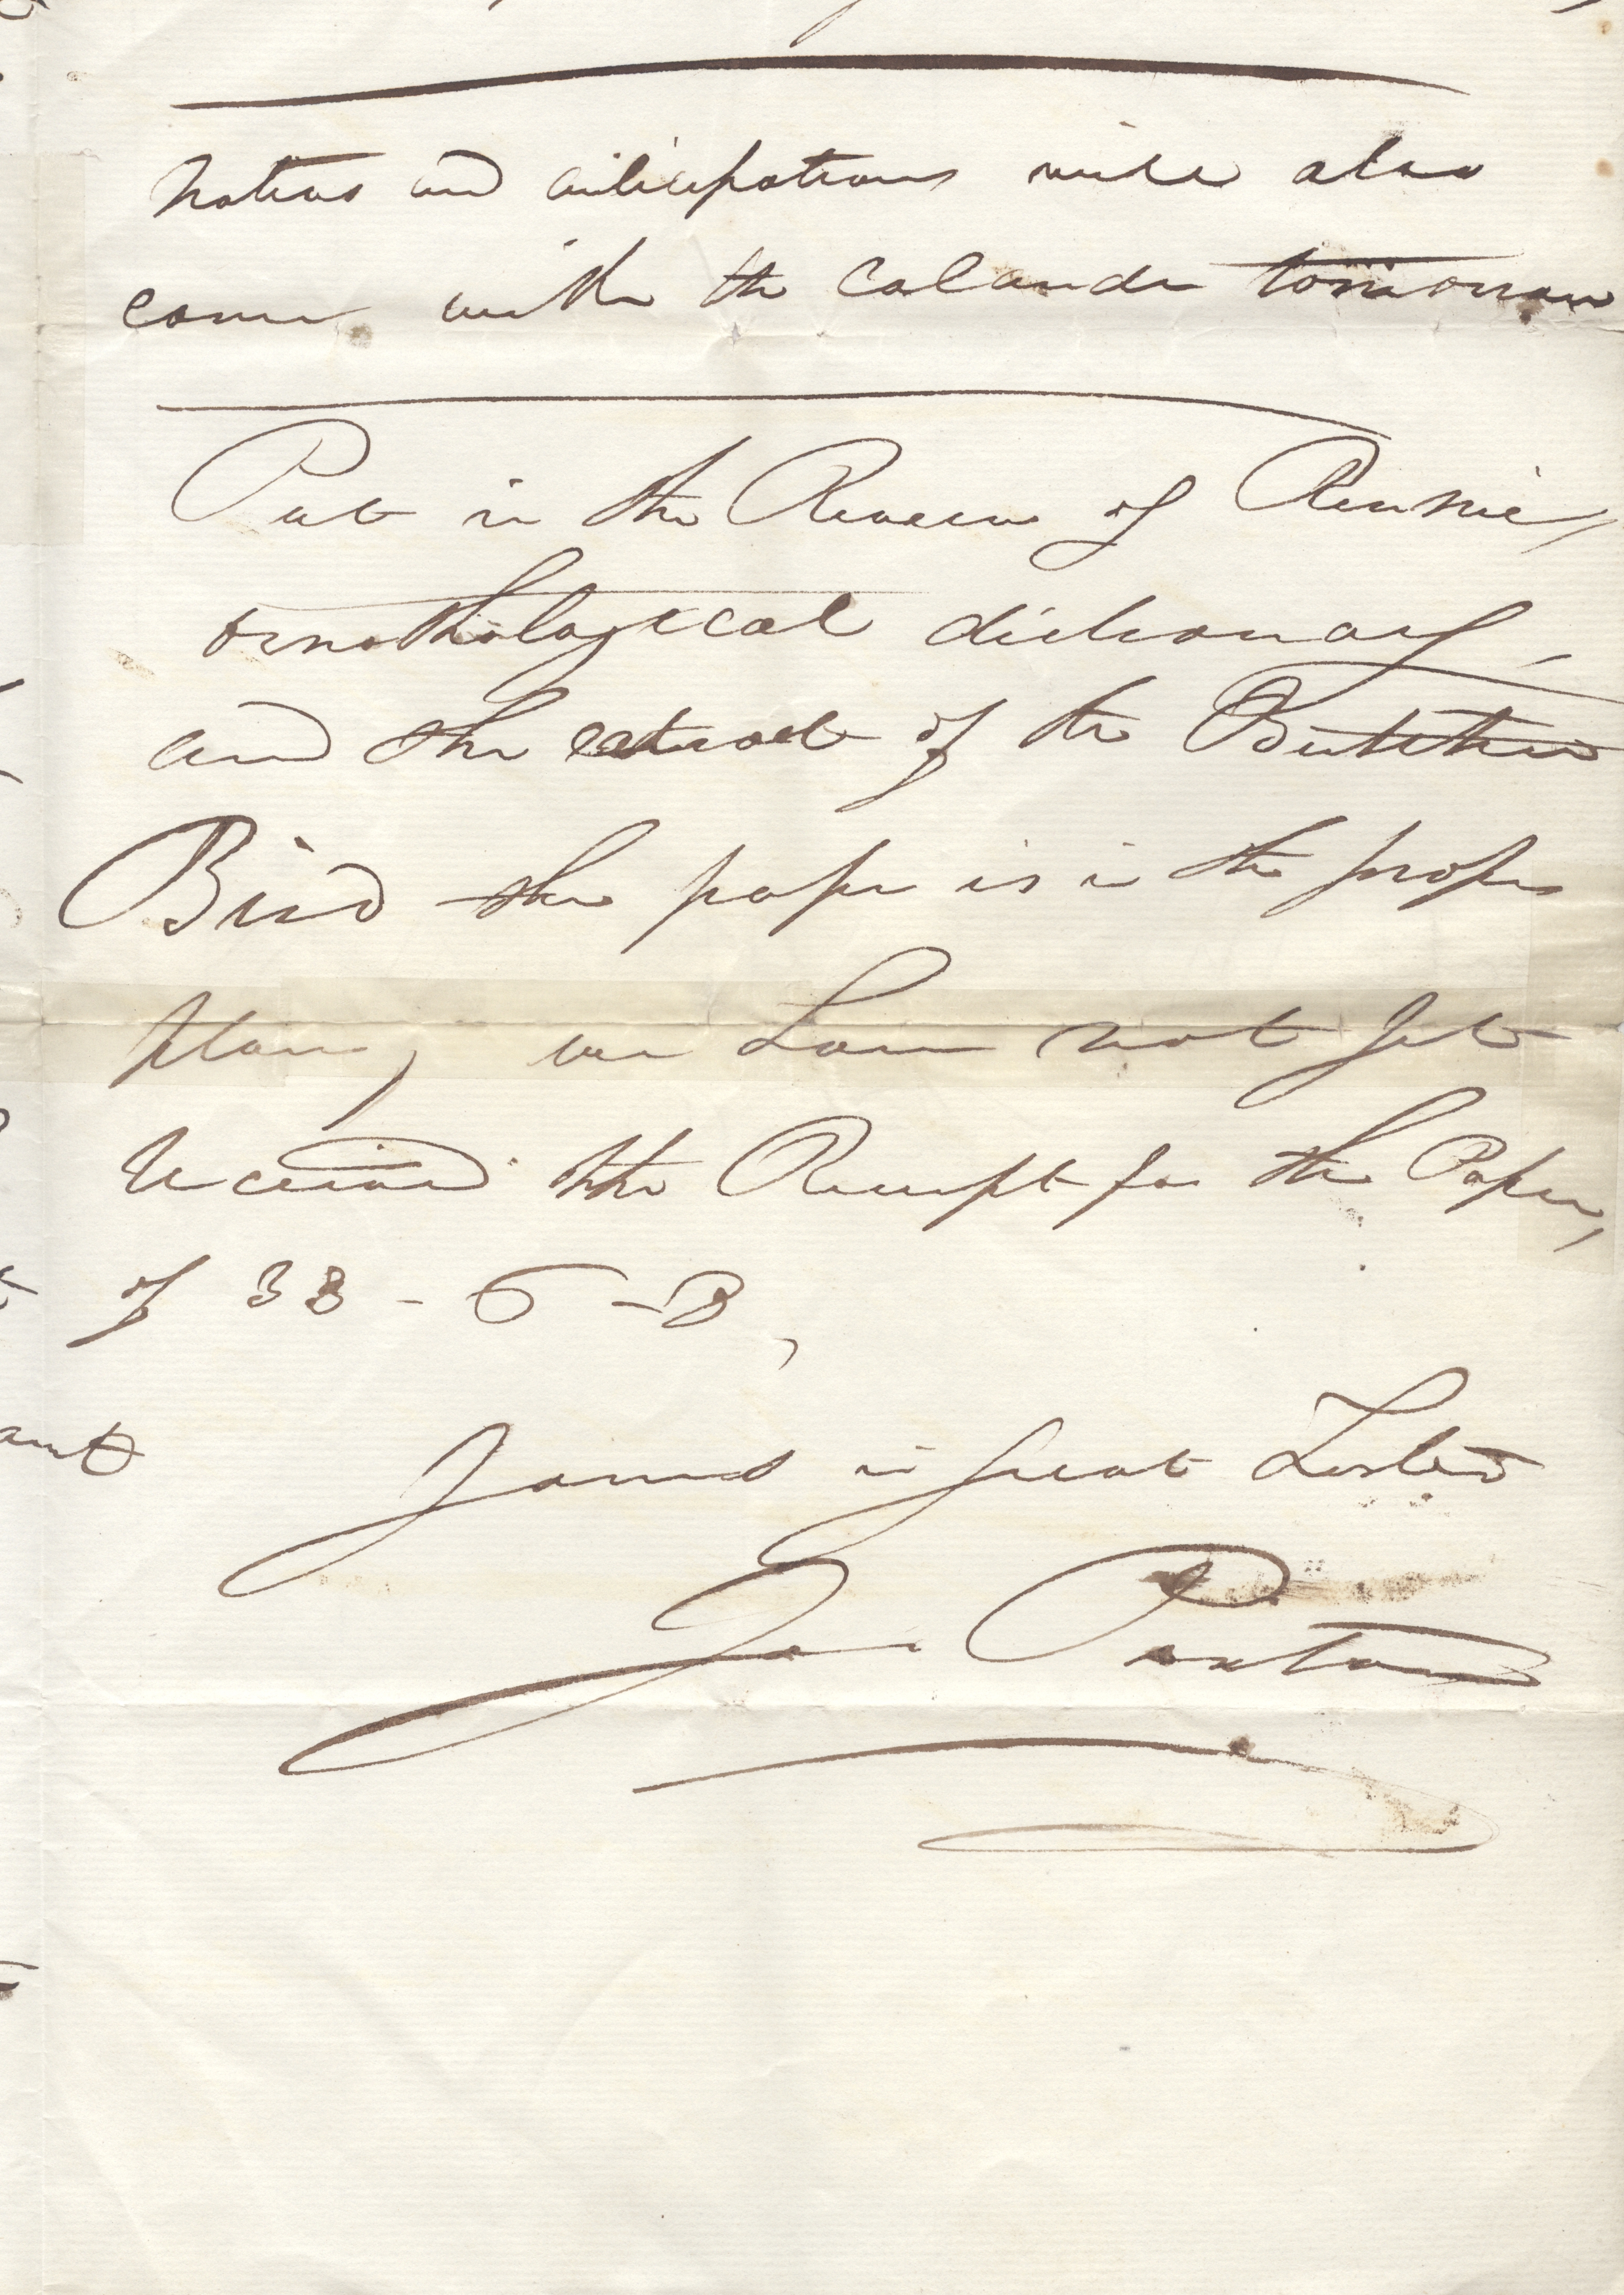 Notices and anticipations will also
come with the Calander tomorrow
Put in the Review of Rennie,
ornothological dictionary,
and the extract of the Butcher
Bird the paper is in the proper
place, we have not yet
received the Receipt for the Paper,
of 33 - 6 - 8,
Yours in great
Jos Paxton